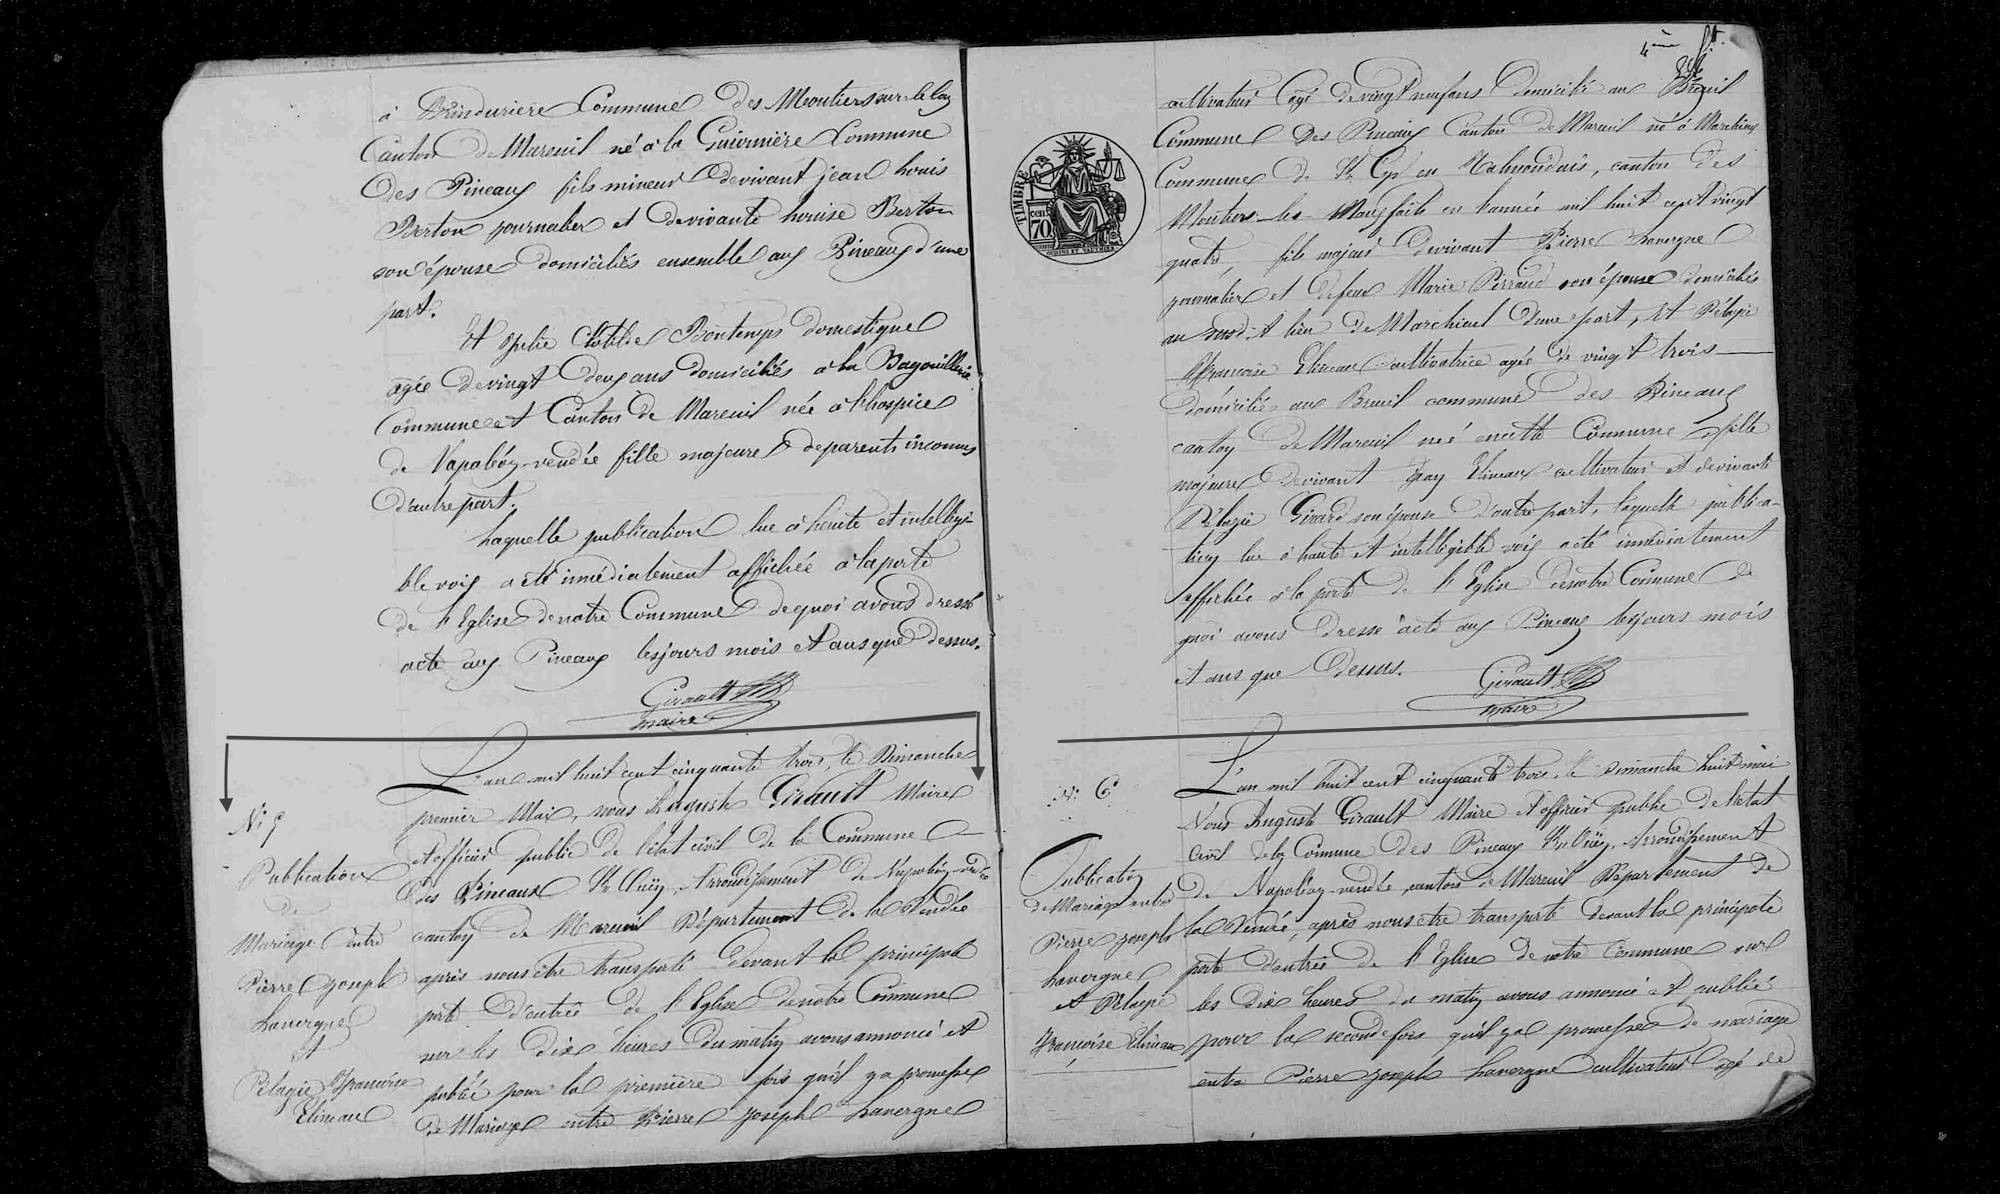 à Brinduriere Commune des Moutiers sur le lay
Canton de Mareuil né à la Guionnière Commune
des Pineaux fils mineur de vivant jean Louis
Berton journalier et de vivante Louise Berton
son épouse domiciliés ensemble aux Pineaux d'une
part.
Et Julie Clotilde Bontemps domestique
agée de vingt deux ans domiciliés à la Bagouillerie
Commune et Canton de Mareuil née à l'hospice
de Napoléon-vendée fille majeure de parents inconnus
d'autre part.
Laquelle publication lue à haute et intelligi-
ble voix a été immédiatement affichée à la porte
de l'Eglise de notre Commune de quoi avons dressé
acte aux Pineaux les jours mois et ans que dessus.
Girault
maire
N° 5
Publication
de
Mariage entre
Pierre Joseph
Lavergne
et
Pélagie Françoise
Elineau
L'an mil huit cent cinquante trois, le Dimanche
premier Mai, nous Auguste Girault Maire
et officier public de l'état civil de la Commune
des Pineaux St Ouën, Arrondissement de Napoléon-vendée
canton de Mareuil Département de la Vendée
après nous être transporté devant la principale
porte d'entrée de l'Eglise de notre Commune
sur les dix heures du matin avons annoncé et
publié pour la première fois qu'il y a promesse
de Mariage entre Pierre Joseph Lavergne
4ème
cultivateur agé de vingt neuf ans domicilié au Breuil
Commune des Pineaux Canton de Mareuil né à
Commune de St Cyr en Talmondais, canton des
Moutiers-les-Maufaits en l'année mil huit cent vingt
quatre, fils majeur de vivant Pierre Lavergne
journalier et de feue Marie Perraud son épouse domiciliés
au susdit lieu de d'une part, et Pélagie
Françoise Elineau cultivatrice agée de vingt trois
domiciliée au Breuil commune des Pineaux
canton de Mareuil née en cette Commune fille
majeure de vivant Jean Elineau cultivateur et de vivante
Pélagie Girard son épouse d'autre part, laquelle publica-
tion lue à haute et intelligible voix a été immédiatement
affichée à la porte de l'Eglise de notre Commune de
quoi avons dressé acte aux Pineaux les jours mois
et ans que dessus.
Girault
maire
TIMBRE
70
N° 6
Publication
de Mariage entre
Pierre Joseph
Lavergne
et Pélagie
Françoise Elineau
L'an mil huit cent cinquante trois, le Dimanche huit mai
Nous Auguste Girault Maire et officier public de l'état
civil de la Commune des Pineaux St Ouën, Arrondissement
de Napoléon-vendée, canton de Mareuil Département de
la Vendée, après nous être transporté devant la principale
porte d'entrée de l'Eglise de notre Commune sur
les dix heures du matin avons annoncé et publié
pour la seconde fois qu'il y a promesse de mariage
entre Pierre Joseph Lavergne cultivateur agé de